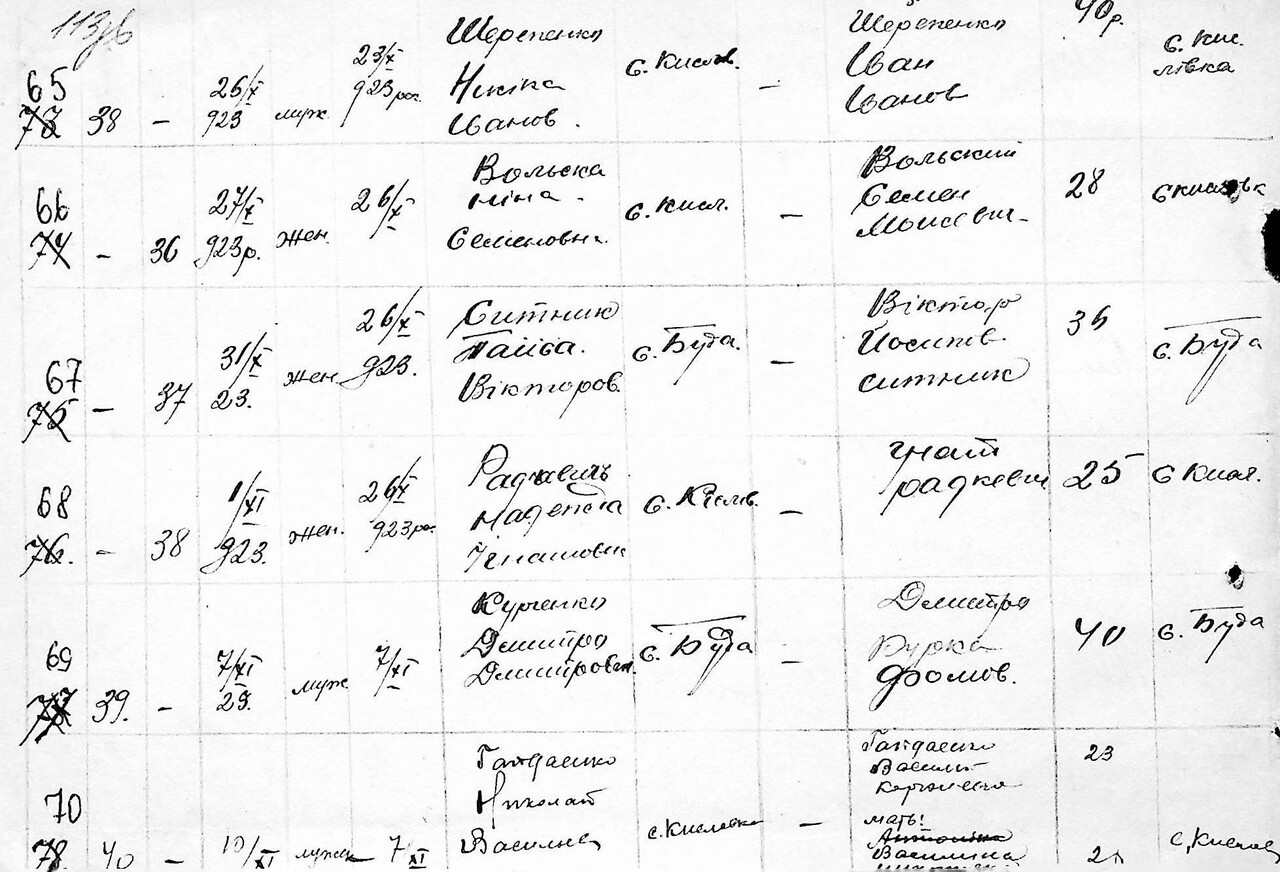 113зв
65
73 38 –
26/X
923
муж.
23/X
923 рог.
Шерепенко
Никіка
Іванов.
с. Кислов.
–
Шерепенко
Іван
Іванов
40р.
с. Кис.
лівка
66
74 – 36
27/X
923р.
жен.
26/X
Вольска
ніна
Семеновна.
с. Кисл.
–
Вольский
Семен
Моисеевич
28
67
75 – 37
31/X
23.
жен.
26/X
923.
Ситник
Вікторов.
с. Буда.
–
Віктор
Йосипов.
ситник
36
с. Буда
68
76. – 38
1/XI
923.
жен.
26/X
923 рог.
Радкевичь
Надежда
Ігнатовна
с. Кислів.
–
Гнат
радкевич
25
с Кисл.
69
77 39. –
7/XI
23.
муж
7/XI
Курченко
Дмитро
Дмитрович.
с. Буда
–
Дмитро
Курка
Фромов.
40
с. Буда
70
78. 40 –
10/XI
мужск
7/XI
Гайдаенко
Николай
Васильев
с. Кислевка
–
Гайдаенко
Василь
мать:
Антоніна
Василина
23